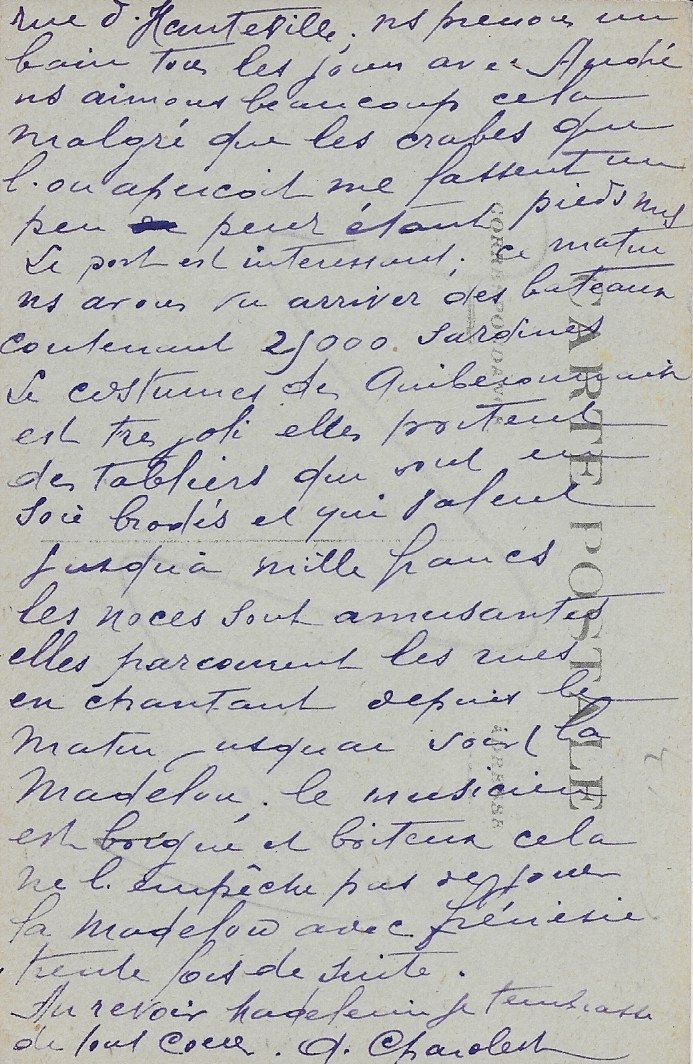 rue d'Hauteville. ns prenons un
bain tous les jours avec André
ns aimons beaucoup cela
malgré que les crabes que
l'on aperçoit me fassent un
peu peur étant pieds nus
Le port est interessant. ce matin
ns avons vu arriver des bateaux
contenant 25000 sardines
Le costumes des Quiberonnaises
est tres joli elles portent
des tabliers qui sont en
soie brodés et qui valent
jusqu'à mille francs
les noces sont amusantes
elles parcourent les rues
en chantant depuis le
matin jusquau soir la
Madelon. le musicien
est borgne et boiteux cela
ne l'empêche pas de jouer
la Madelon avec frénésie
trente fois de suite.
Au revoir Madeleine je t'embrasse
de tout coeur.
CARTE POSTALE
CORRESPONDANCE
ADRESSE